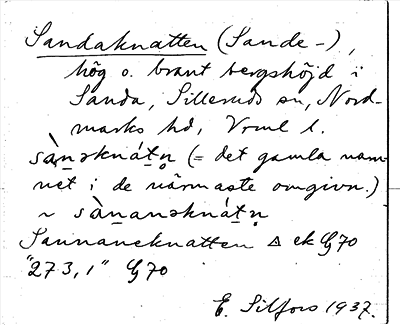 Sandaknatten (Sande-),
hög o. brant bergshöjd i
Sanda, Silleruds sn, Nord-
marks hd, Vrml l.
sàn̲əknát̲n̥ (= det gamla nam-
net i de närmaste omgivn.)
~ sàn̲anəknát̲n̥
Sannaneknatten Δ ek G70
"273,1" G70
E. Silfors 1937.